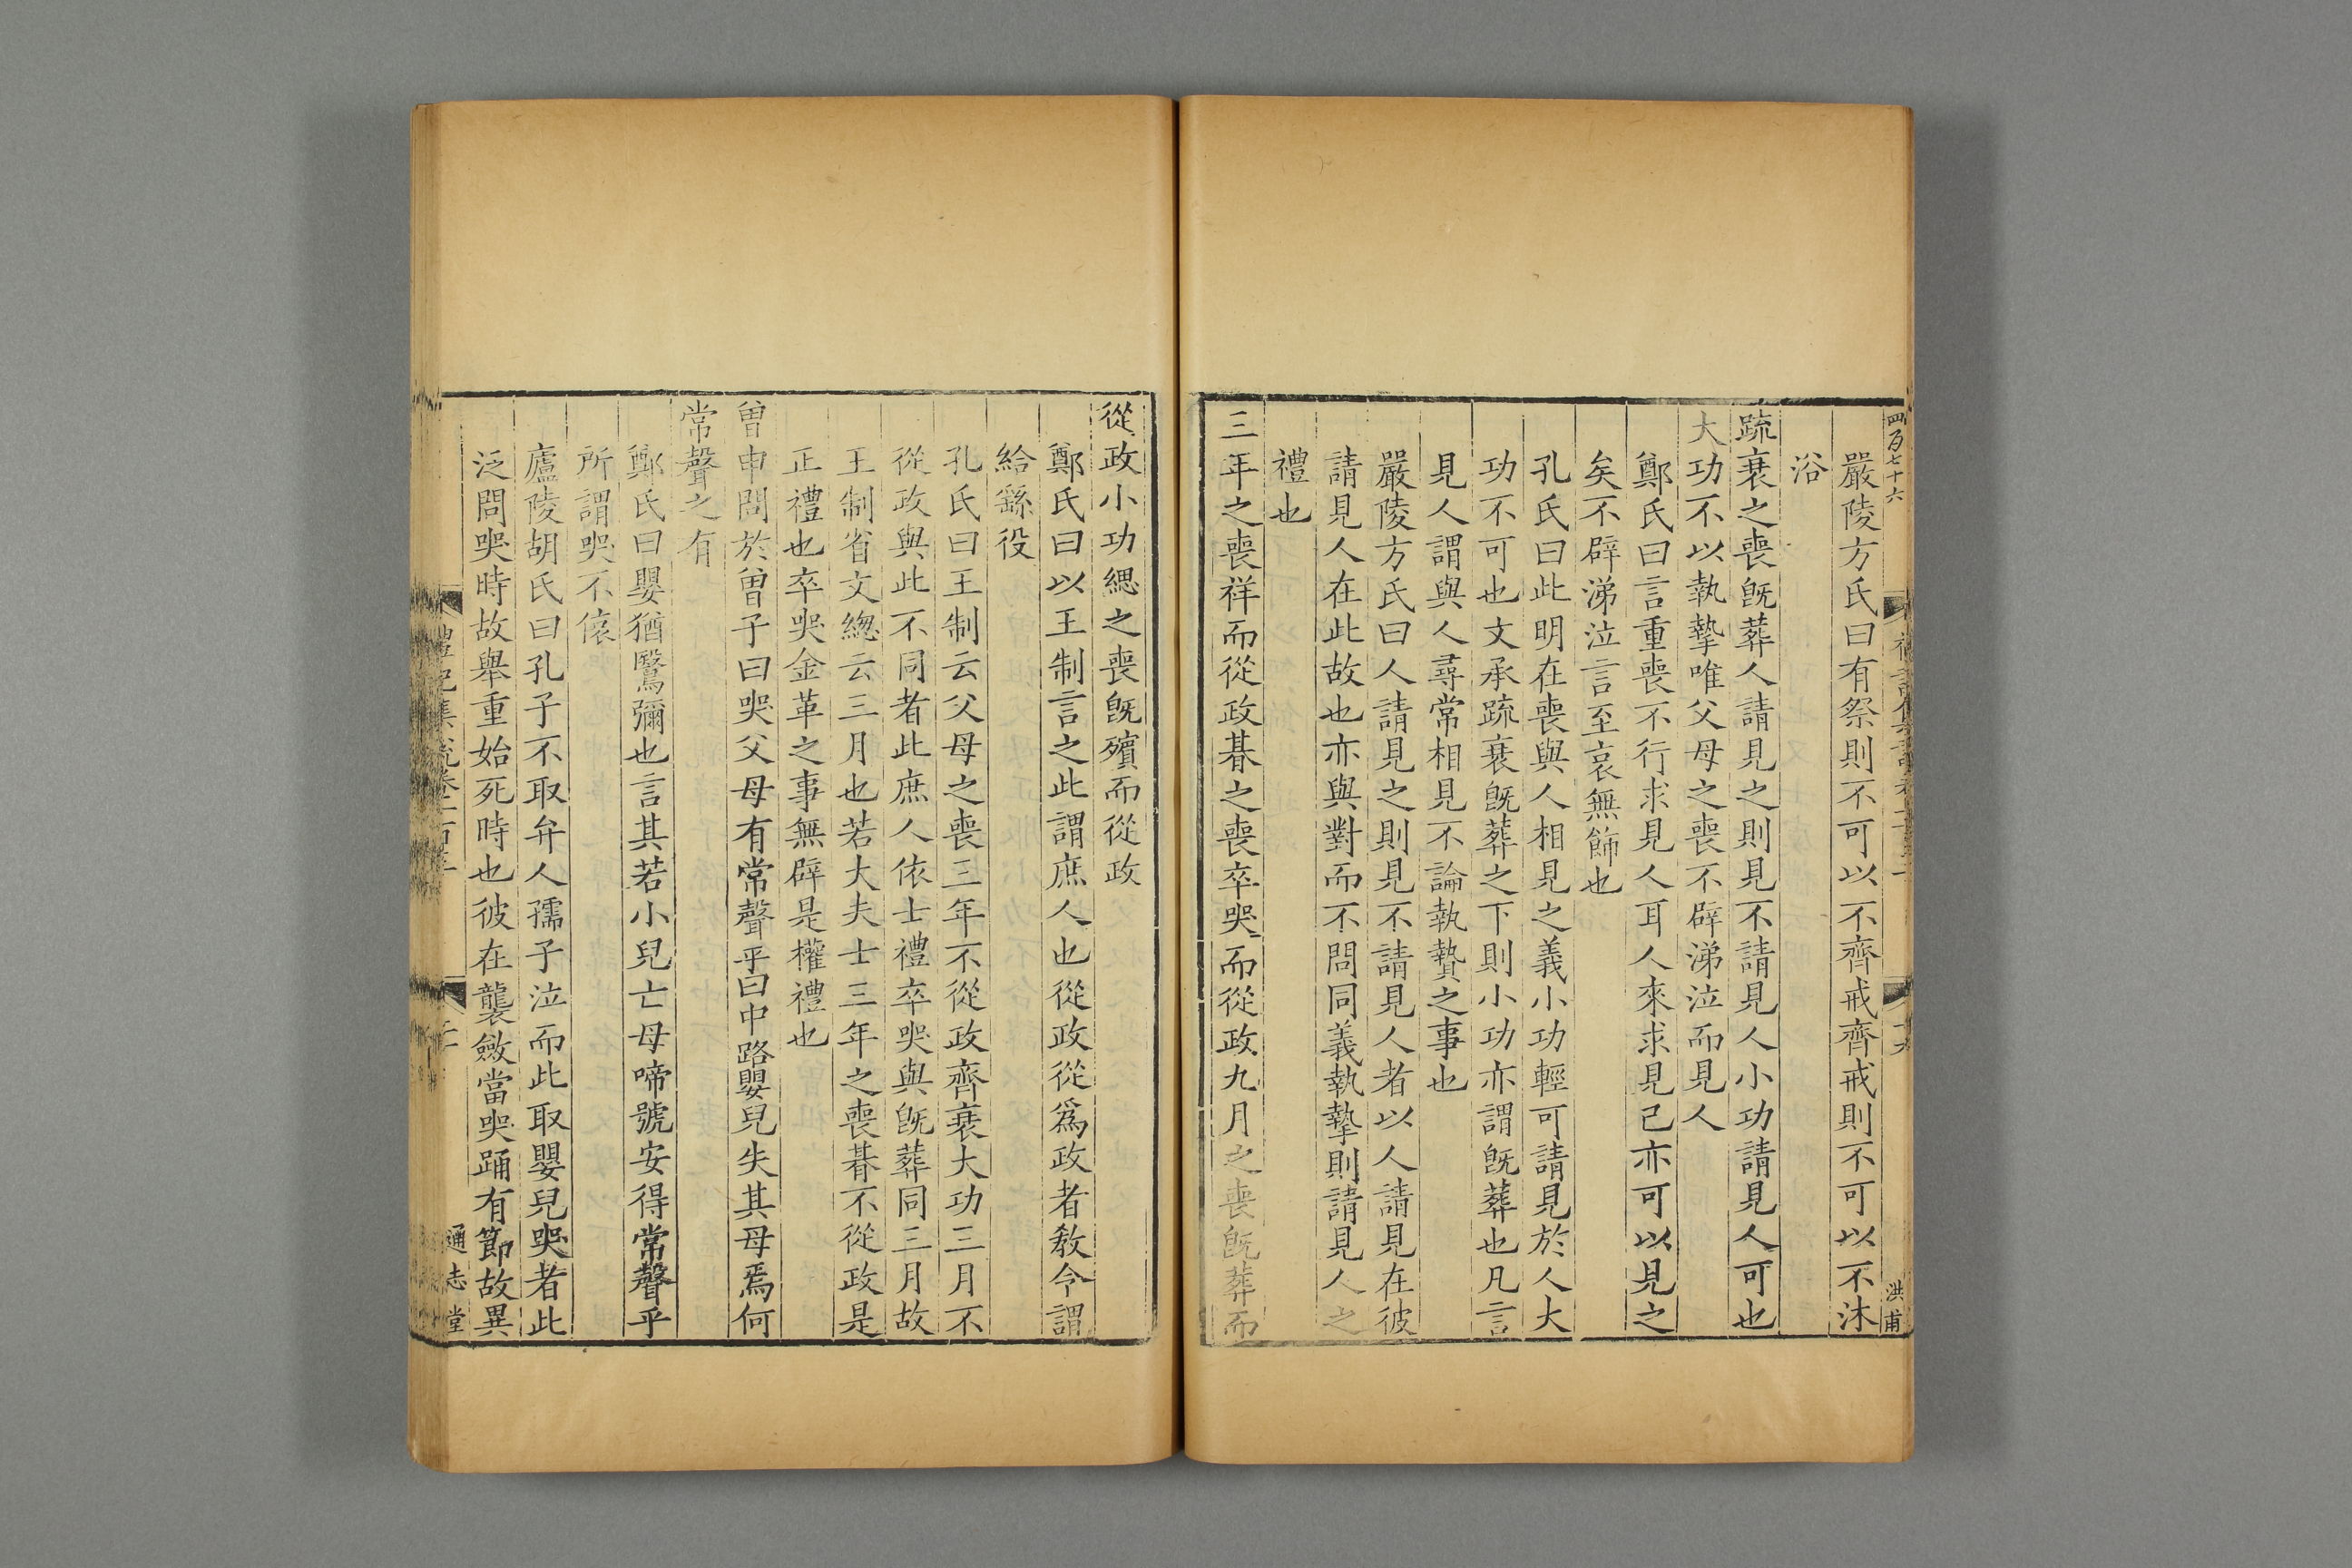 四百七十六
洪甫
嚴陵方氏曰有祭則不可以不齊戒齊戒則不可以不沐
浴
疏衰之喪旣葬人請見之則見不請見人小功請見人可也
大功不以執摯唯父母之喪不辟涕泣而見人
鄭氏曰言重喪不行求見人耳人來求見己亦可以見之
矣不辟涕泣言至哀無飾也
孔氏曰此明在喪與人相見之義小功輕可請見於人大
功不可也文承疏衰旣葬之下則小功亦謂旣葬也凡言
見人謂與人尋常相見不論執贄之事也
嚴陵方氏曰人請見之則見不請見人者以人請見在彼
請見人在此故也亦與對而不問同義執摯則請見人之
禮也
三年之喪祥而從政朞之喪卒哭而從政九月之喪旣葬而
從政小功緦之喪旣殯而從政
鄭氏曰以王制言之此謂庶人也從政從爲政者敎令謂
給繇役
孔氏曰王制云父母之喪三年不從政齊衰大功三月不
從政與此不同者此庶人依士禮卒哭與旣葬同三月故
王制省文緫云三月也若大夫士三年之喪朞不從政是
正禮也卒哭金革之事無辟是權禮也
曾申問於曾子曰哭父母有常聲乎曰中路嬰兒失其母焉何
常聲之有
鄭氏曰嬰猶鷖彌也言其若小兒亡母啼號安得常聲乎
所謂哭不偯
廬陵胡氏曰孔子不取弁人孺子泣而此取嬰兒哭者此
泛問哭時故舉重始死時也彼在襲斂當哭踊有節故異
禮記集說卷
通志堂